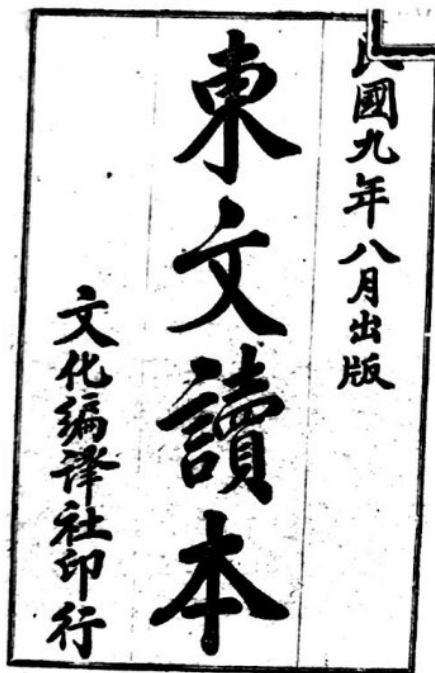 民國九年八月出版
東文讀本
文化編譯社印行